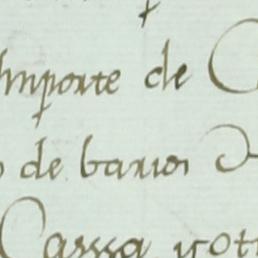 importe de
de barios
Cassa yoti